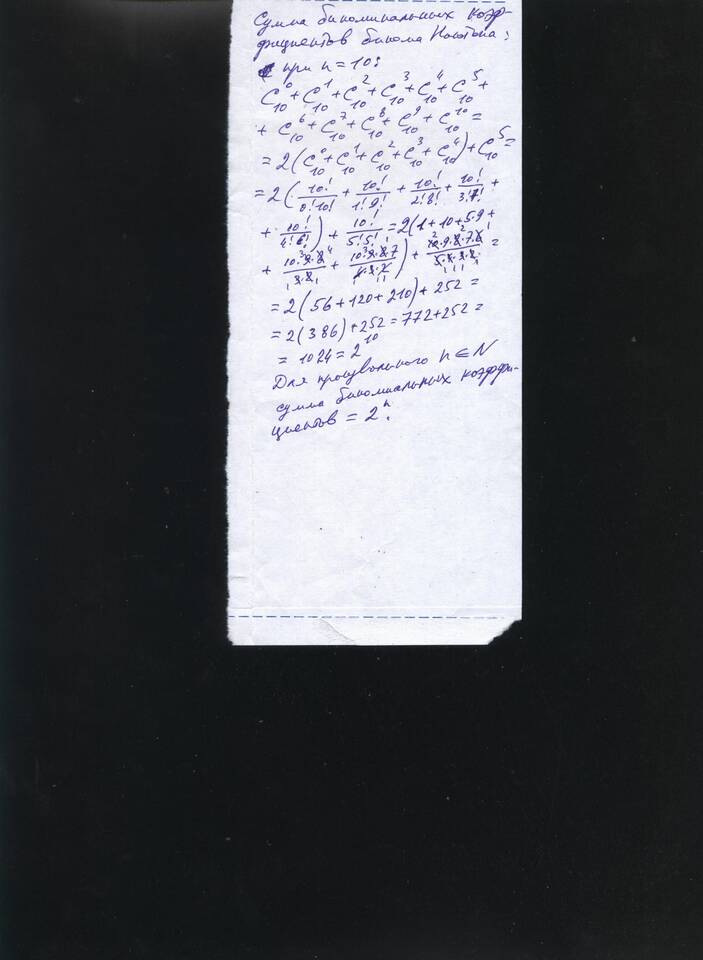 Сумма биноминальных коэф-
фициентов бинома Ньютона:
при n = 10:
C₁₀⁰ + C₁₀¹ + C₁₀² + C₁₀³ + C₁₀⁴ + C₁₀⁵ +
+ C₁₀⁶ + C₁₀⁷ + C₁₀⁸ + C₁₀⁹ + C₁₀¹⁰ =
= 2(C₁₀⁰ + C₁₀¹ + C₁₀² + C₁₀³ + C₁₀⁴) + C₁₀⁵ =
= 2(10!/0!10! + 10!/1!9! + 10!/2!8! + 10!/3!7! +
+ 10!/4!6!) + 10!/5!5! = 2(1 + 10 + 5·9 +
+ 10·9·8/3·2 + 10·9·8·7/4·3·2) + 10·9·8·7·6/5·4·3·2 =
= 2(56 + 120 + 210) + 252 =
= 2(386) + 252 = 772 + 252 =
= 1024 = 2¹⁰
Для произвольного n ∈ N
сумма биномиальных коэффи-
циентов = 2ⁿ.